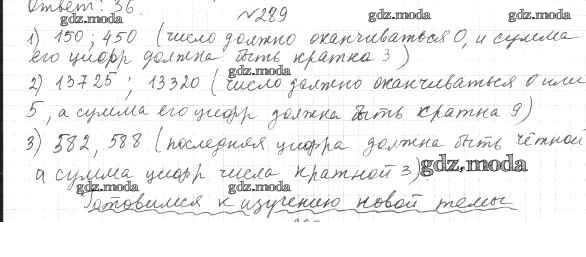 Ответ: 36.
gdz.moda gdz.moda gdz.moda
№289
1) 150; 450 (число должно оканчиваться 0, и сумма
его цифр должна быть кратна 3)
gdz.moda
2) 13725; 13320 (число должно оканчиваться 0 или
5, а сумма его цифр должна быть кратна 9)
3) 582, 588 (последняя цифра должна быть чётной
а сумма цифр числа кратной 3)
gdz.moda
gdz.moda gdz.moda
Готовимся к изучению новой темы